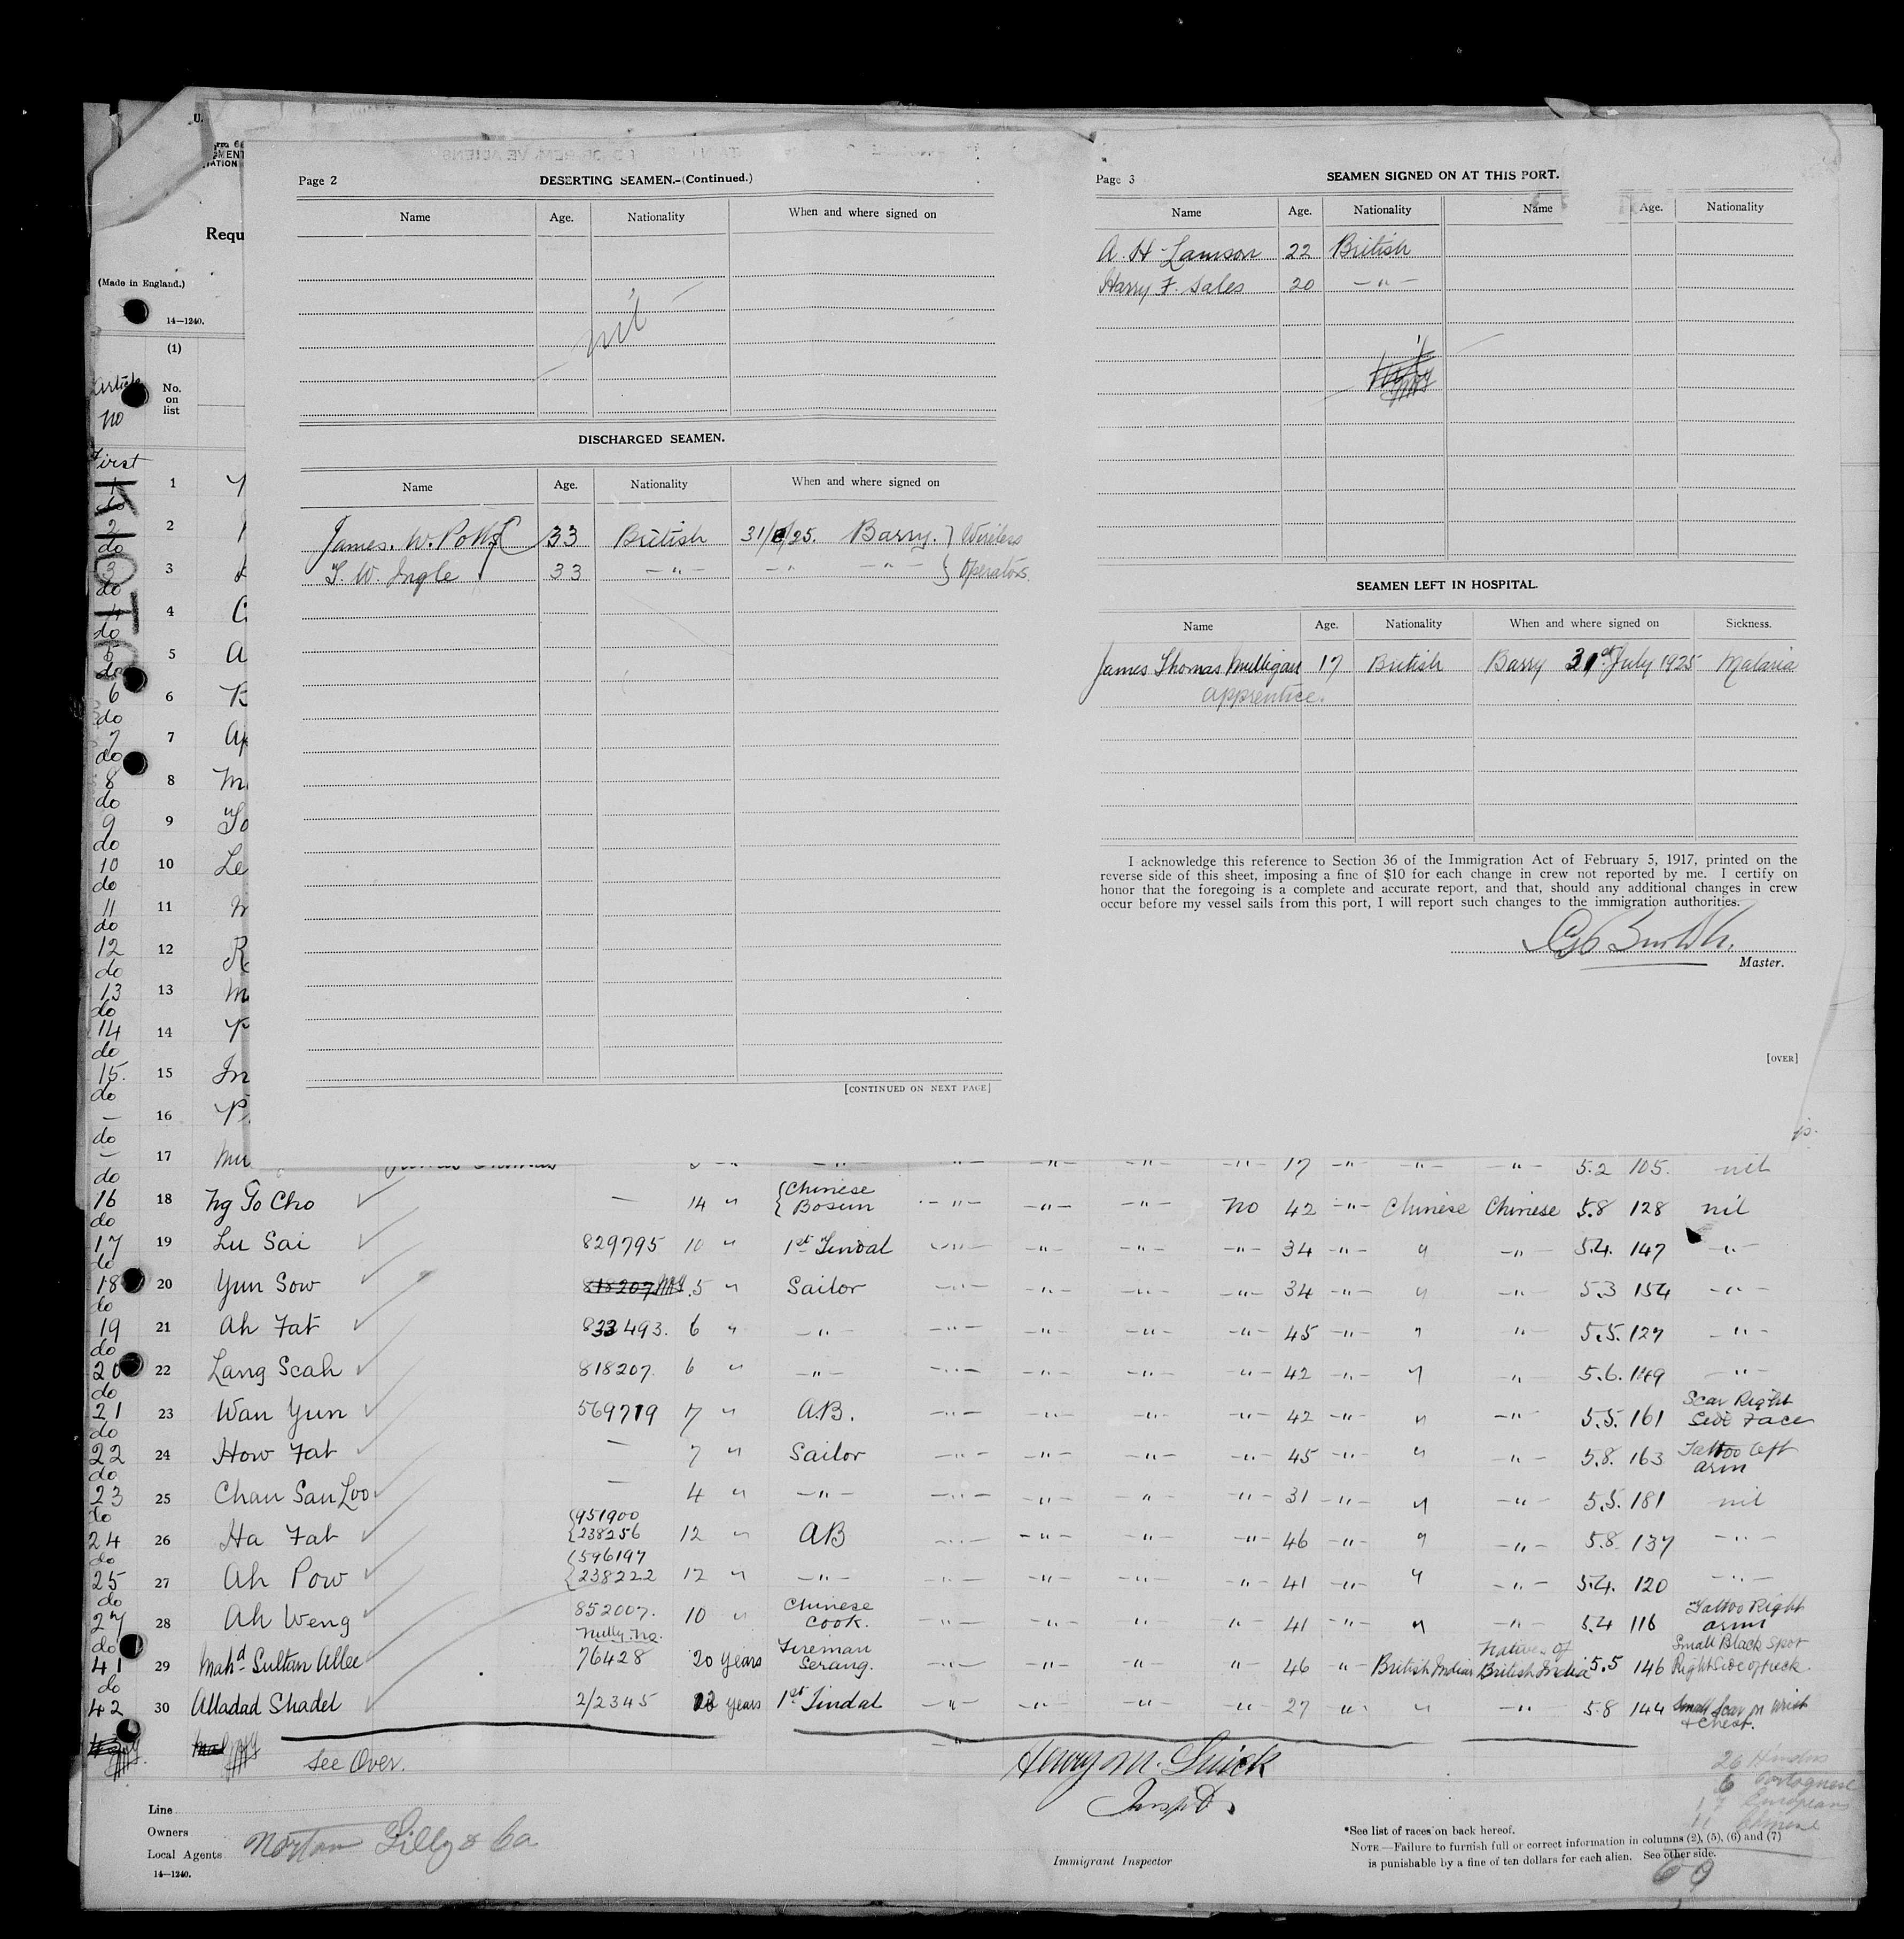 U.
Requ
(Made in England.)
14—1240.
(1)
No.
on
list
Article
no
First
Page 2
DESERTING SEAMEN.—(Continued.)
Name Age. Nationality When and where signed on
nil
DISCHARGED SEAMEN.
Name Age. Nationality When and where signed on
James. W. Potts 33 British 31/8/25. Barry. } Wireless
T. W. Ingle 33 —"— —"— —"— } Operators
[CONTINUED ON NEXT PAGE]
Page 3
SEAMEN SIGNED ON AT THIS PORT.
Name Age. Nationality Name Age. Nationality
A. H. Lamson 22 British
Harry F. Sales 20 —"—
SEAMEN LEFT IN HOSPITAL.
Name Age. Nationality When and where signed on Sickness.
James Thomas Mulligan 17 British Barry 31st July 1925 Malaria
apprentice.
I acknowledge this reference to Section 36 of the Immigration Act of February 5, 1917, printed on the
reverse side of this sheet, imposing a fine of $10 for each change in crew not reported by me. I certify on
honor that the foregoing is a complete and accurate report, and that, should any additional changes in crew
occur before my vessel sails from this port, I will report such changes to the immigration authorities.
Master.
[OVER]
1
2
do 3
do 4
do 5
do 6
do 7
do 8
do 9
do 10
do 11
do 12
do 13
do 14
do 15
do 16
do 17 17 —"— —"— —"— 5.2 105. nil
16 18 Ng To Cho — 14 " { Chinese Bosun —"— —"— —"— No 42 —"— Chinese Chinese 5.8 128 nil
do
17 19 Lu Sai 829795 10 " 1st Tindal —"— —"— —"— —"— 34 —"— " —"— 5.4. 147 —"—
do
18 20 Yun Sow 818207 5 " Sailor —"— —"— —"— —"— 34 —"— " —"— 5.3 154 —"—
do
19 21 Ah Fat 833493. 6 " —"— —"— —"— —"— —"— 45 —"— " —"— 5.5. 127 —"—
do
20 22 Lang Scah 818207. 6 " —"— —"— —"— —"— —"— 42 —"— " —"— 5.6. 149 —"—
do
21 23 Wan Yun 569719 7 " A.B. —"— —"— —"— —"— 42 —"— " —"— 5.5. 161 Scar Right Side Face
do
22 24 How Fat — 7 " Sailor —"— —"— —"— —"— 45 —"— " —"— 5.8. 163 Tattoo left arm
do
23 25 Chan San Loo — 4 " —"— —"— —"— " —"— 31 —"— " —"— 5.5. 181 nil
do
24 26 Ha Fat { 951900 238256 12 " AB —"— —"— —"— —"— 46 —"— " —"— 5.8. 137 —"—
do
25 27 Ah Pow { 596197 238222 12 " —"— —"— —"— —"— —"— 41 —"— " —"— 5.4. 120 —"—
do
27 28 Ah Weng 852007. 10 " Chinese Cook. —"— —"— —"— " 41 —"— " —"— 5.4 116 Tattoo Right arm
do
41 29 Mahd Sultan Allee Nully No. 76428 20 years Fireman Serang. —"— —"— —"— " 46 " British Indian Natives of British India 5.5 146 Small Black Spot Right Side of neck.
do
42 30 Alladad Shadel 2/2345 12 years 1st Tindal —"— —"— —"— " 27 " " —"— 5.8 144 Small Scar on Wrist & Chest.
See Over.
Henry M. Quick
Inspt.
26 Hindus
6 Portuguese
17 Europeans
11 Chinese
60
Line
Owners
Local Agents Norton Lilly & Co
14—1240.
Immigrant Inspector
*See list of races on back hereof.
NOTE.—Failure to furnish full or correct information in columns (2), (5), (6) and (7)
is punishable by a fine of ten dollars for each alien. See other side.